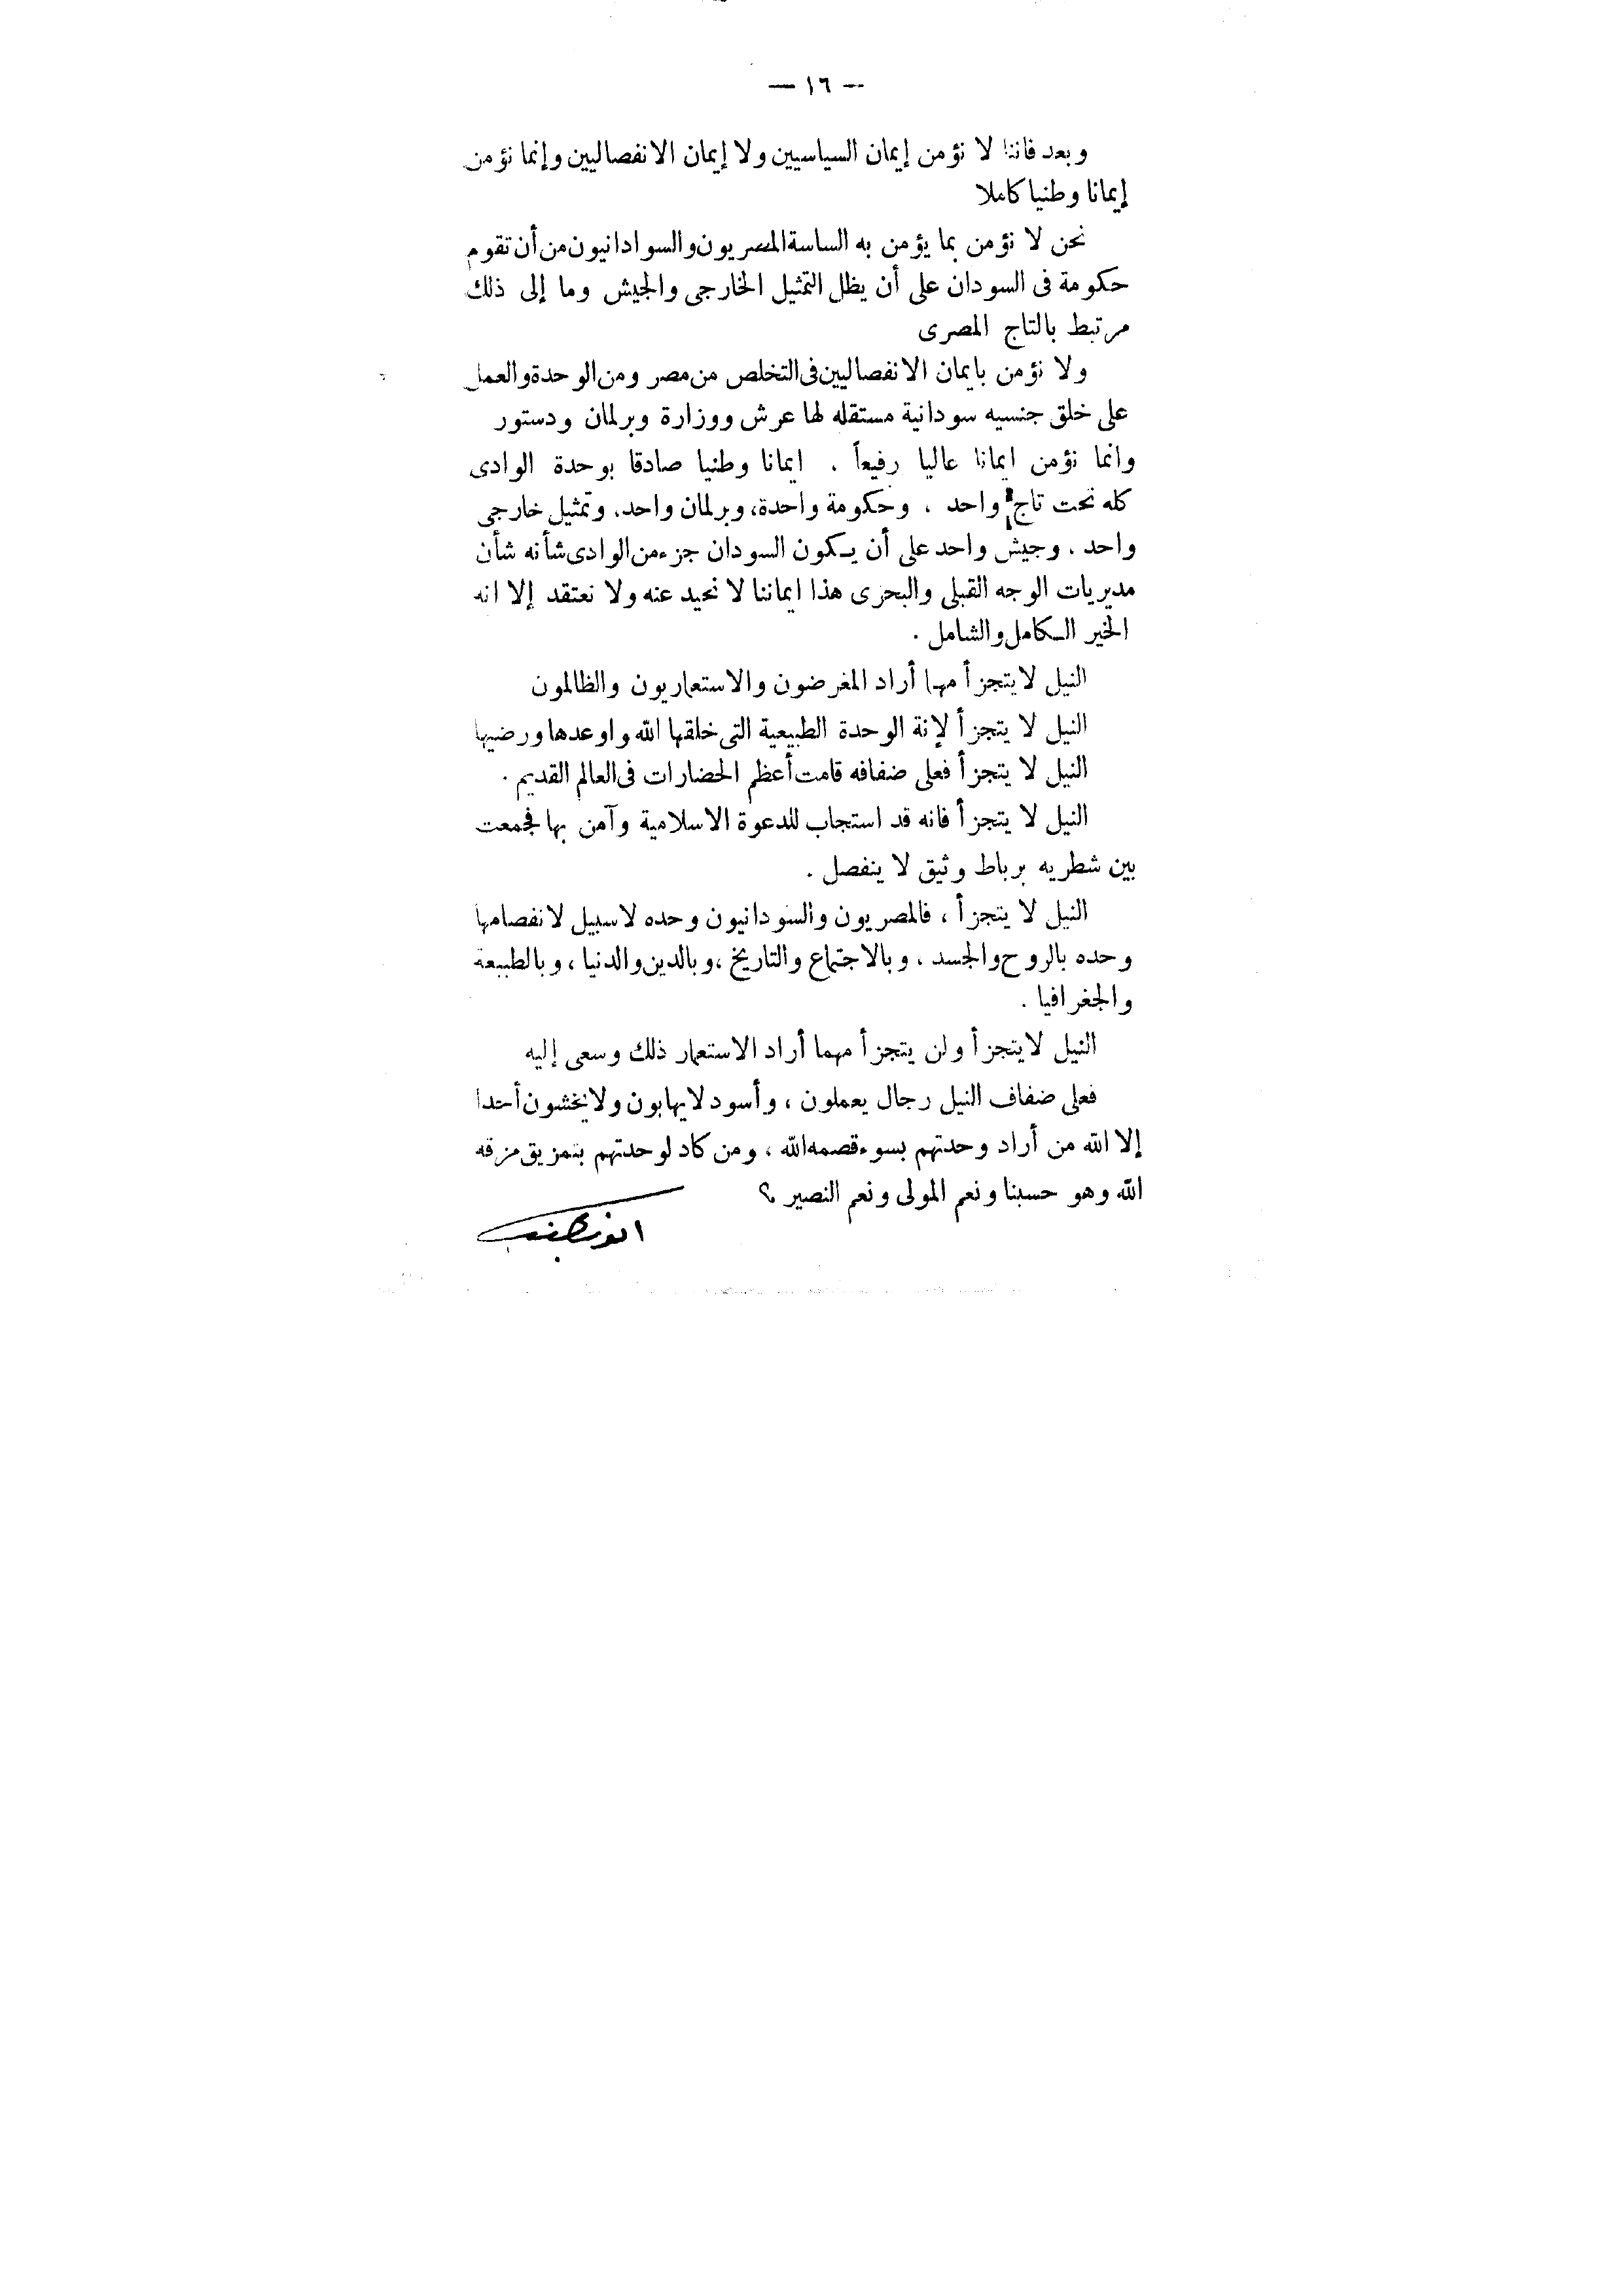 — ١٦ —
وبعد فاننا لا نؤمن إيمان السياسيين ولا إيمان الانفصاليين وإنما نؤمن
إيمانا وطنيا كاملا
نحن لا نؤمن بما يؤمن به الساسة المصريون والسوادانيون من أن تقوم
حكومة فى السودان على أن يظل التمثيل الخارجى والجيش وما إلى ذلك
مرتبط بالتاج المصرى
ولا نؤمن بايمان الانفصاليين فى التخلص من مصر ومن الوحدة والعمل
على خلق جنسيه سودانية مستقله لها عرش ووزارة وبرلمان ودستور
وانما نؤمن ايمانا عاليا رفيعاً . ايمانا وطنيا صادقا بوحدة الوادى
كله تحت تاج واحد ، وحكومة واحدة، وبرلمان واحد، وتمثيل خارجى
واحد . وجيش واحد على أن يكون السودان جزء من الوادى شأنه شأن
مديريات الوجه القبلى والبحرى هذا ايماننا لا نحيد عنه ولا نعتقد إلا انه
الخير الكامل والشامل .
النيل لا يتجزأ مهما أراد المغرضون والاستعماريون والظالمون
النيل لا يتجزأ لإنة الوحدة الطبيعية التى خلقها الله واوعدها ورضيها
النيل لا يتجزأ فعلى ضفافه قامت أعظم الحضارات فى العالم القديم .
النيل لا يتجزأ فانه قد استجاب للدعوة الاسلامية وآمن بها فجمعت
بين شطريه برباط وثيق لا ينفصل .
النيل لا يتجزأ ، فالمصريون والسودانيون وحده لا سبيل لانفصامها
وحده بالروح والجسد ، وبالاجتماع والتاريخ ، وبالدين والدنيا ، وبالطبيعة
والجغرافيا .
النيل لا يتجزأ ولن يتجزأ مهما أراد الاستعمار ذلك وسعى إليه
فعلى ضفاف النيل رجال يعملون ، وأسود لا يهابون ولا يخشون أحدا
إلا الله من أراد وحدتهم بسوء قصمه الله ، ومن كاد لوحدتهم بتمزيق مزقه
الله وهو حسبنا ونعم المولى ونعم النصير ؟